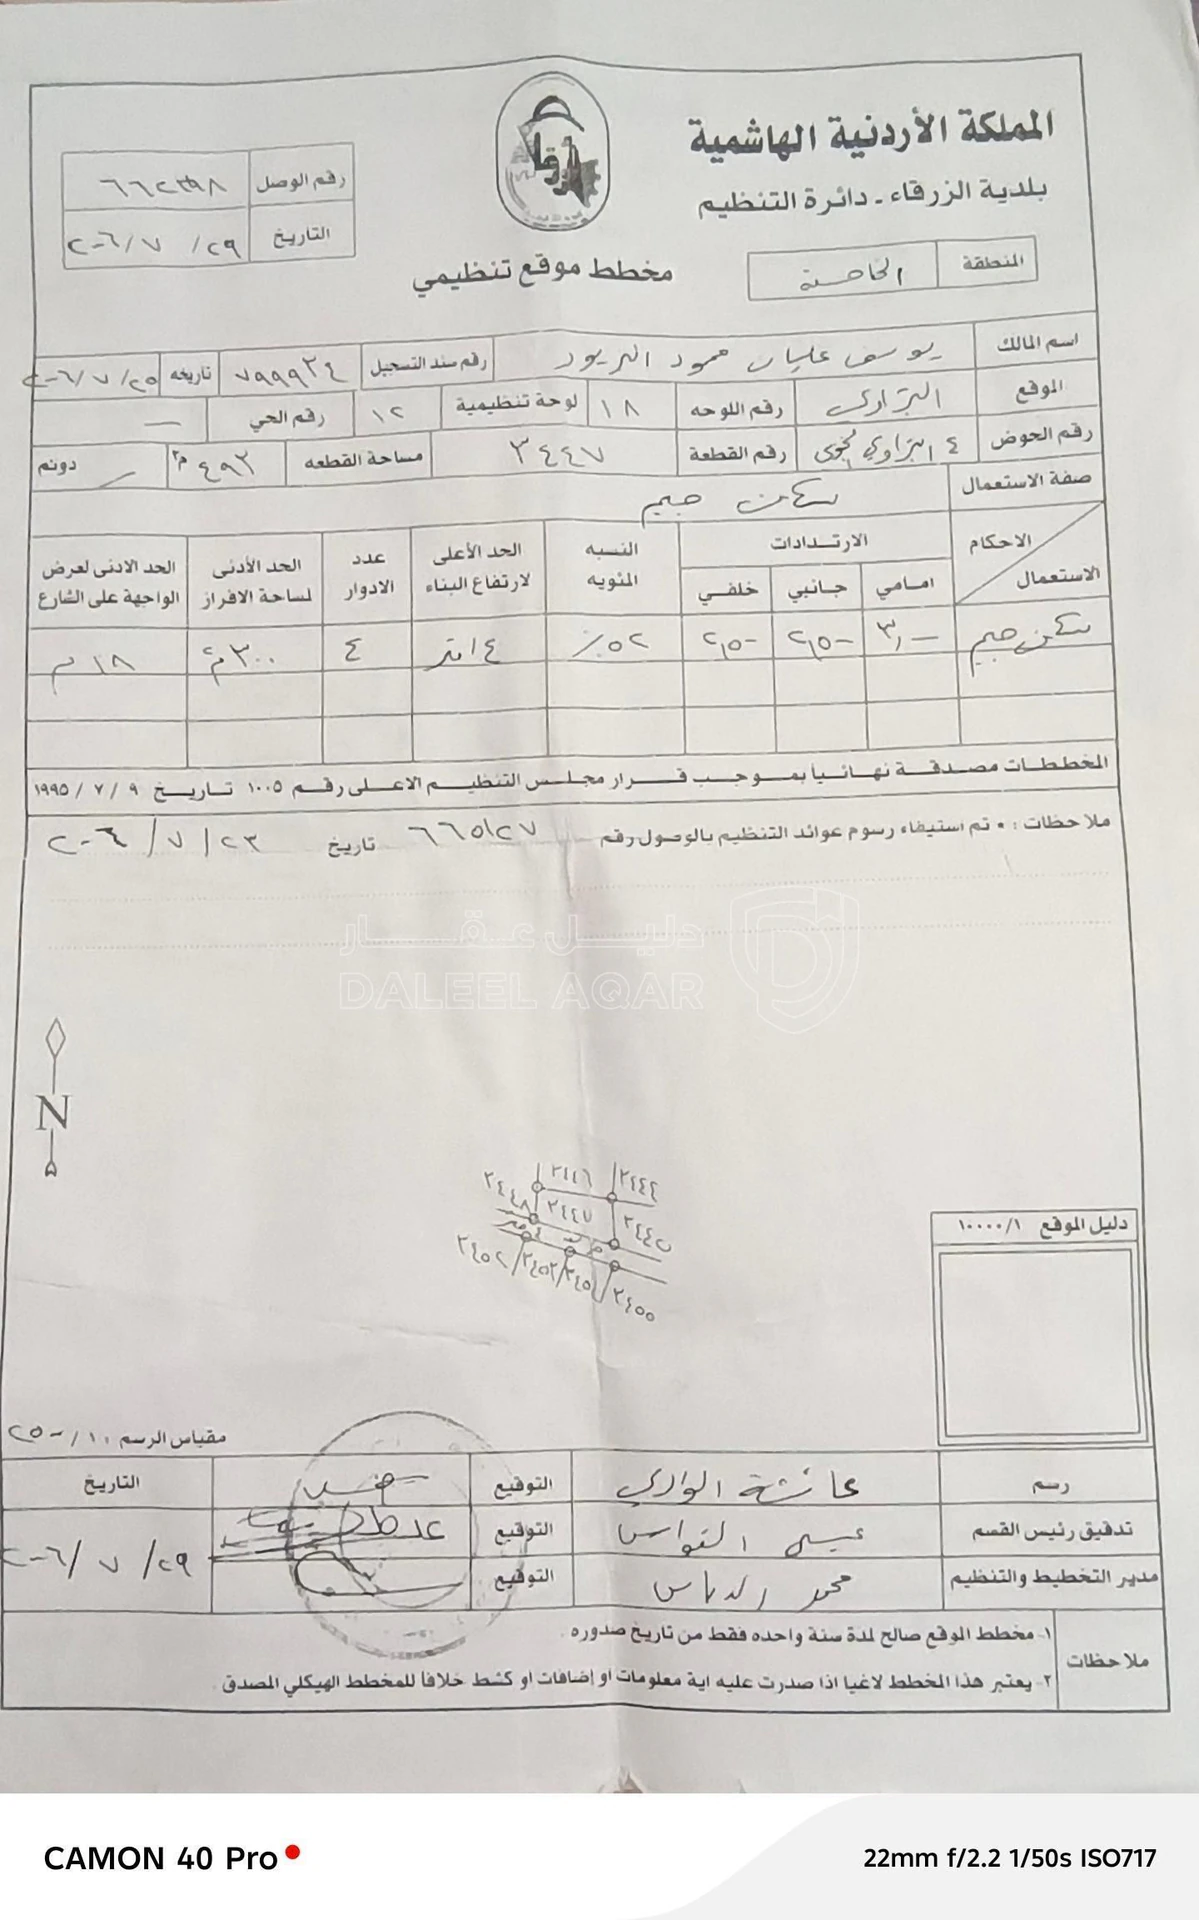 المملكة الأردنية الهاشمية
بلدية الزرقاء - دائرة التنظيم
رقم الوصل ٦٦٢٣٩٨
التاريخ ٢٩ / ٧ / ٢٠٠٦
المنطقة الخامسة
مخطط موقع تنظيمي
اسم المالك يوسف عليان محمود رقم سند التسجيل ٧٩٩٩٣٤ تاريخه ٢٥ / ٧ / ٢٠٠٦
الموقع البتراوي رقم اللوحه ١٨ لوحة تنظيمية ١٢ رقم الحي —
رقم الحوض ٤ البتراوي رقم القطعة ٣٤٤٧ مساحة القطعه ٤٩٣ م٢ دونم
صفة الاستعمال سكن جيم
الاحكام الارتدادات النسبه المئويه الحد الأعلى لارتفاع البناء عدد الادوار الحد الأدنى لمساحة الافراز الحد الادنى لعرض الواجهة على الشارع
الاستعمال امامي جانبي خلفي
سكن جيم ٣,٠٠ ٢,٥٠ ٢,٥٠ ٥٢٪ ١٤ متر ٤ ٣٠٠ م٢ ١٨ م
المخططات مصدقة نهائيا بموجب قرار مجلس التنظيم الاعلى رقم ١٠٠٥ تاريخ ٩ / ٧ / ١٩٩٥
ملاحظات : • تم استيفاء رسوم عوائد التنظيم بالوصول رقم ٦٦٥١٢٧ تاريخ ٢٣ / ٧ / ٢٠٠٦
دليـل عقـار
DALEEL AQAR
N
٣٤٤٦
٣٤٤٨ ٣٤٤٧
٣٤٥٥
دليل الموقع ١٠٠٠٠/١
مقياس الرسم : ١ / ٢٥٠٠
رسم التوقيع التاريخ
تدقيق رئيس القسم التوقيع ٢٩ / ٧ / ٢٠٠٦
مدير التخطيط والتنظيم محمد التوقيع
ملاحظات
١- مخطط الموقع صالح لمدة سنة واحده فقط من تاريخ صدوره .
٢- يعتبر هذا المخطط لاغيا اذا صدرت عليه اية معلومات او إضافات او كشط خلافا للمخطط الهيكلي المصدق .
CAMON 40 Pro
22mm f/2.2 1/50s ISO717